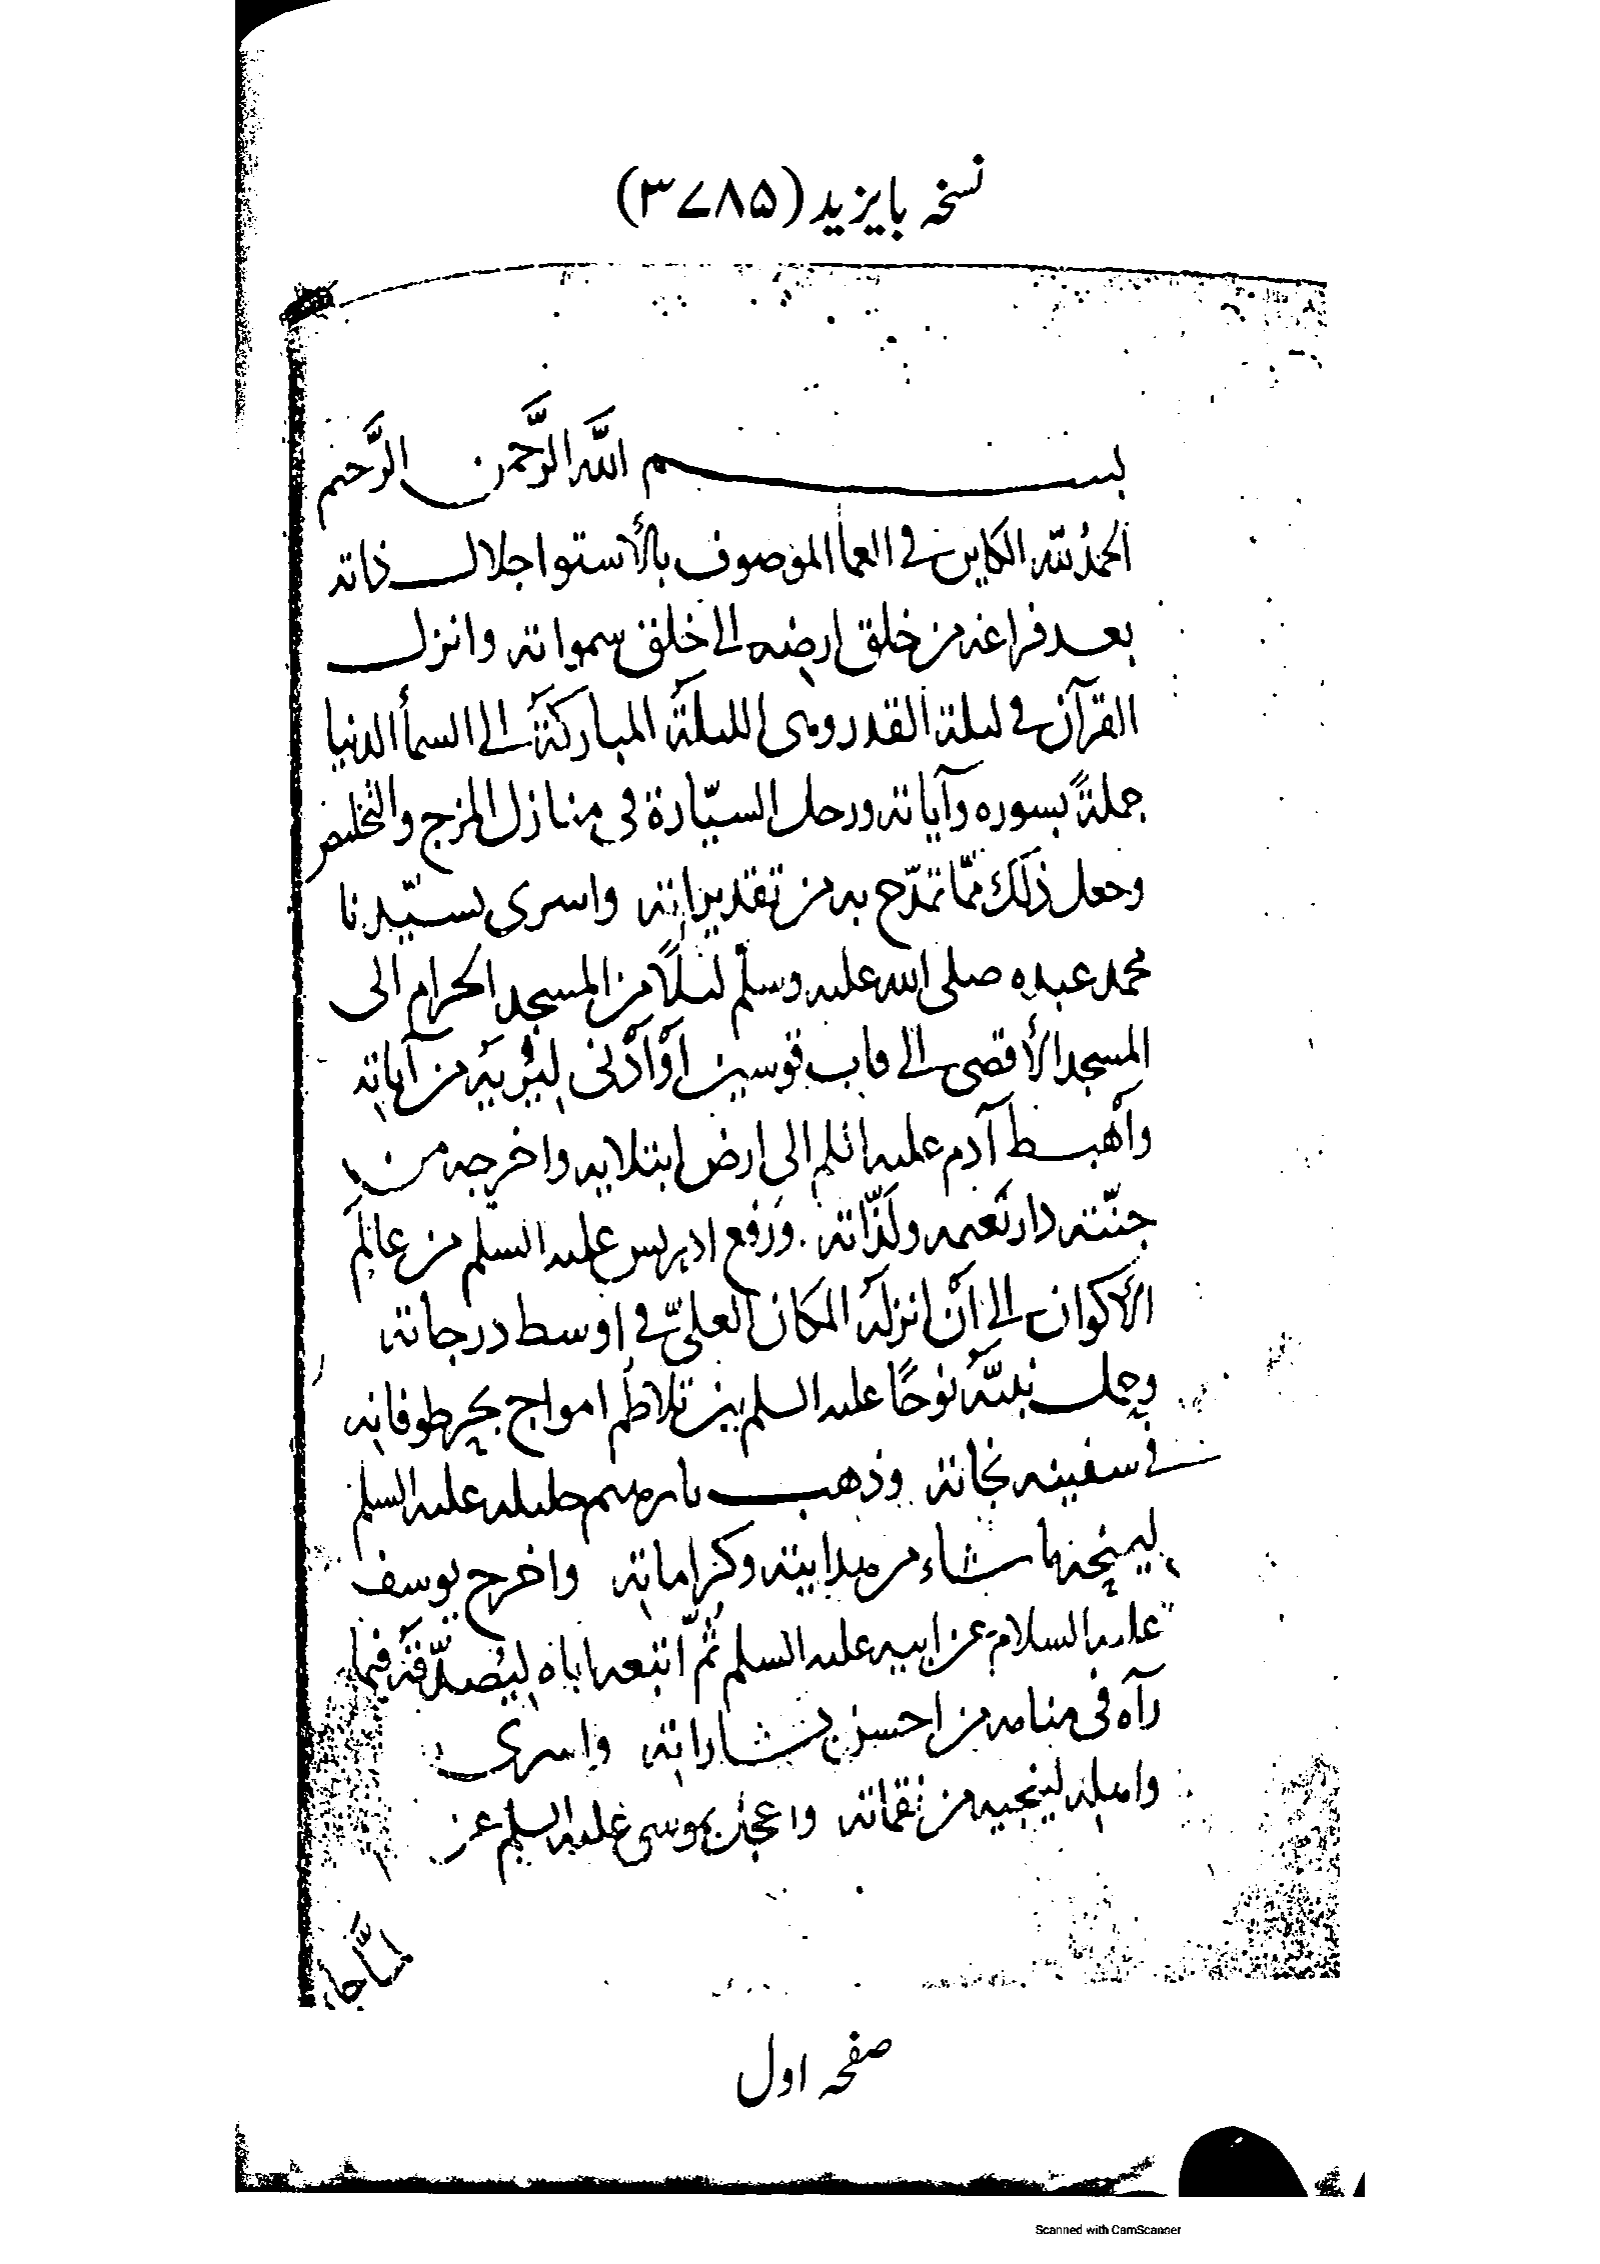 نسخہ بایزید (۳۷۸۵)
بسم الله الرَّحمن الرَّحيم
الحمدُ لله الكاين في العما الموصوف بالأستوا جلال ذاته
بعد فراغه من خلق ارضه الى خلق سمواته وانزل
القرآن في ليلة القدر وهي الليلة المباركة الى السمأ الدنيا
جملةً بسوره وآياته ورحل السيّارة في منازل المزج والتخليص
وجعل ذلك ممّا تمدّح به من تقديراته واسرى بسيّدنا
محمد عبده صلى الله عليه وسلم ليلًا من المسجد الحرام الى
المسجد الأقصى الى قاب قوسين أوْ أدْنى ليُريَه من آياته
وأهبط آدم عليه السلم الى ارض ابتلايه واخرجه من
جنّته دار نعيمه ولَذّاته . ورَفع ادريس عليه السلم من عالَم
الأكوان الى أن انزلَه المكان العليّ في اوسط درجاته
وحمل نبيَّه نوحًا عليه السلم بين تلاطُم امواج بحر طوفانه
في سفينه نجاته وذهب بابرهيم خليله عليه السلم
ليمنحه ما شاء من هدايته وكراماته واخرج يوسف
عليه السلام عن ابيه عليه السلم ثُمّ اتبعه اباه ليُصدّقَه فيما
رآه في منامه من احسن بشاراته واسرى
واهله لينجيه من نقماته واعجل بموسى عليه السلم عن
لمّا جا
صفحہ اول
Scanned with CamScanner